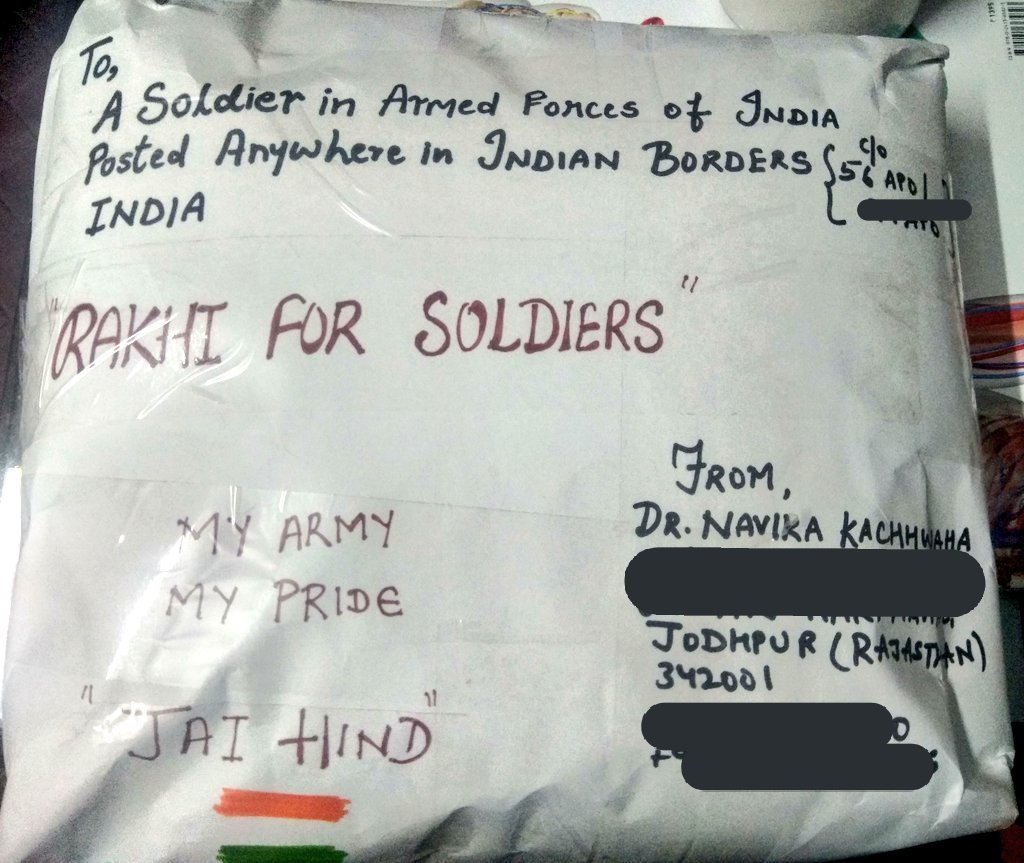 To,
A Soldier in Armed Forces of INDIA
Posted Anywhere in INDIAN BORDERS
c/o
56 APO
INDIA
"RAKHI FOR SOLDIERS"
MY ARMY
MY PRIDE
"JAI HIND"
FROM,
DR. NAVIKA KACHHWAHA
JODHPUR (RAJASTHAN)
342001